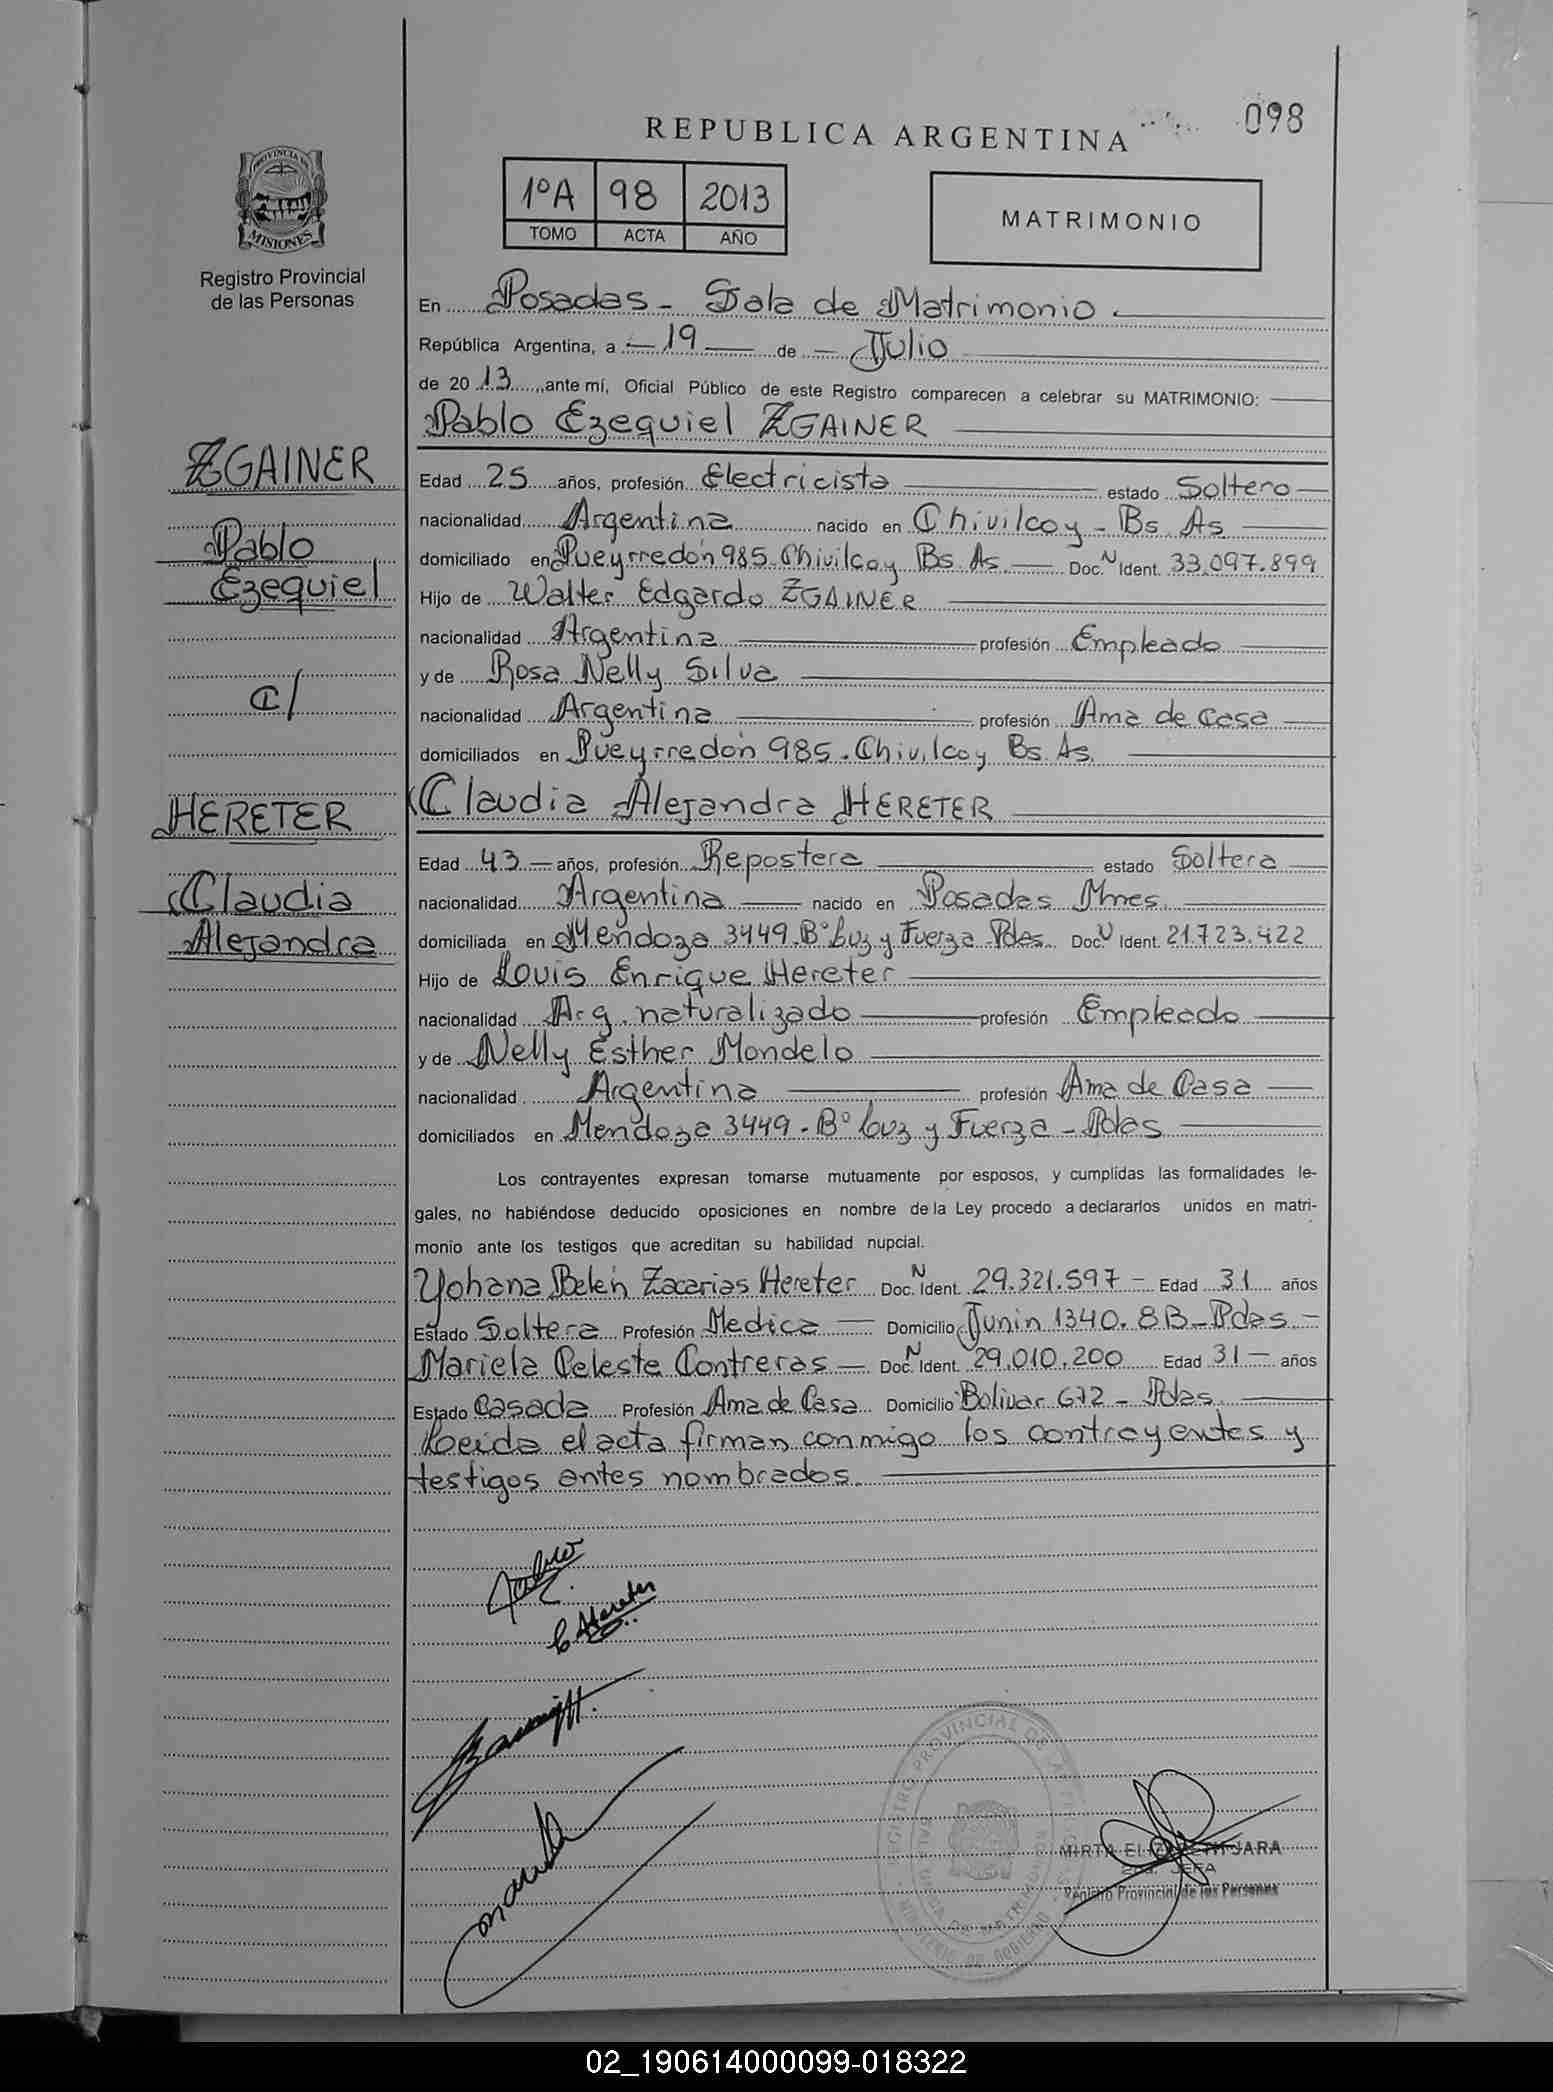 REPUBLICA ARGENTINA
098
PROVINCIA DE
MISIONES
Registro Provincial
de las Personas
1ºA 98 2013
TOMO ACTA AÑO
MATRIMONIO
En Posadas - Sala de Matrimonio
República Argentina, a 19 de Julio
de 2013, ante mí, Oficial Público de este Registro comparecen a celebrar su MATRIMONIO:
Pablo Ezequiel ZGAINER
ZGAINER
Pablo
Ezequiel
c/
HERETER
Claudia
Alejandra
Edad 25 años, profesión Electricista estado Soltero
nacionalidad Argentina nacido en Chivilcoy - Bs. As
domiciliado en Pueyrredón 985. Chivilcoy Bs. As. Doc. N Ident. 33.097.899
Hijo de Walter Edgardo ZGAINER
nacionalidad Argentina profesión Empleado
y de Rosa Nelly Silva
nacionalidad Argentina profesión Ama de Casa
domiciliados en Pueyrredón 985. Chivilcoy Bs. As.
Claudia Alejandra HERETER
Edad 43 años, profesión Repostera estado Soltera
nacionalidad Argentina nacido en Posadas Mnes.
domiciliada en Mendoza 3449. Bº Luz y Fuerza - Pdas. Doc N Ident. 21.723.422
Hijo de Louis Enrique Hereter
nacionalidad Arg. naturalizado profesión Empleado
y de Nelly Esther Mondelo
nacionalidad Argentina profesión Ama de Casa
domiciliados en Mendoza 3449. Bº Luz y Fuerza - Pdas
Los contrayentes expresan tomarse mutuamente por esposos, y cumplidas las formalidades le-
gales, no habiéndose deducido oposiciones en nombre de la Ley procedo a declararlos unidos en matri-
monio ante los testigos que acreditan su habilidad nupcial.
Yohana Belén Zacarias Hereter Doc. N Ident. 29.321.597 - Edad 31 años
Estado Soltera Profesión Medica Domicilio Junin 1340. 8B - Pdas.
Mariela Celeste Contreras Doc. N Ident. 29.010.200 Edad 31 años
Estado Casada Profesión Ama de Casa Domicilio Bolivar 672 - Pdas.
Leida el acta firman conmigo los contrayentes y
testigos antes nombrados.
C Hereter
REGISTRO PROVINCIAL DE LAS PERSONAS
MIRTA ELIZABETH JARA
JEFA
Registro Provincial de las Personas
02_190614000099-018322